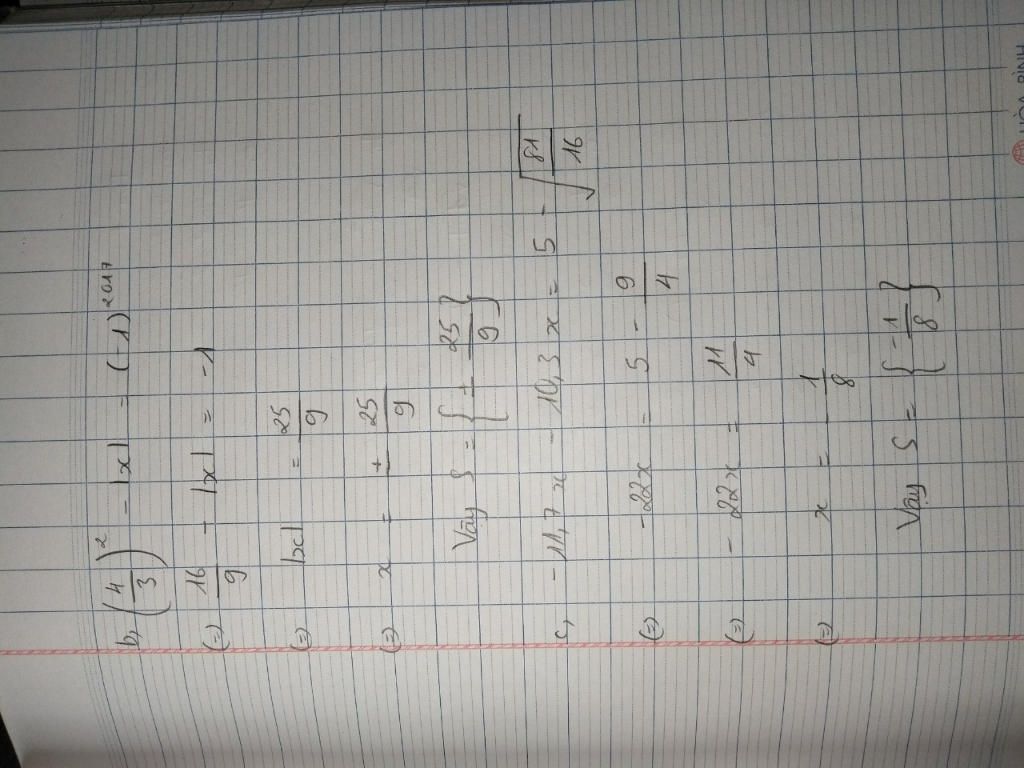 b, (4/3)² - |x| = (-1)²⁰¹⁷
(=) 16/9 - |x| = -1
(=) |x| = 25/9
(=) x = ± 25/9
Vậy S = { ± 25/9 }
c, -11,7x - 10,3x = 5 - √(81/16)
(=) -22x = 5 - 9/4
(=) -22x = 11/4
(=) x = -1/8
Vậy S = { -1/8 }
HÒA BÌNH